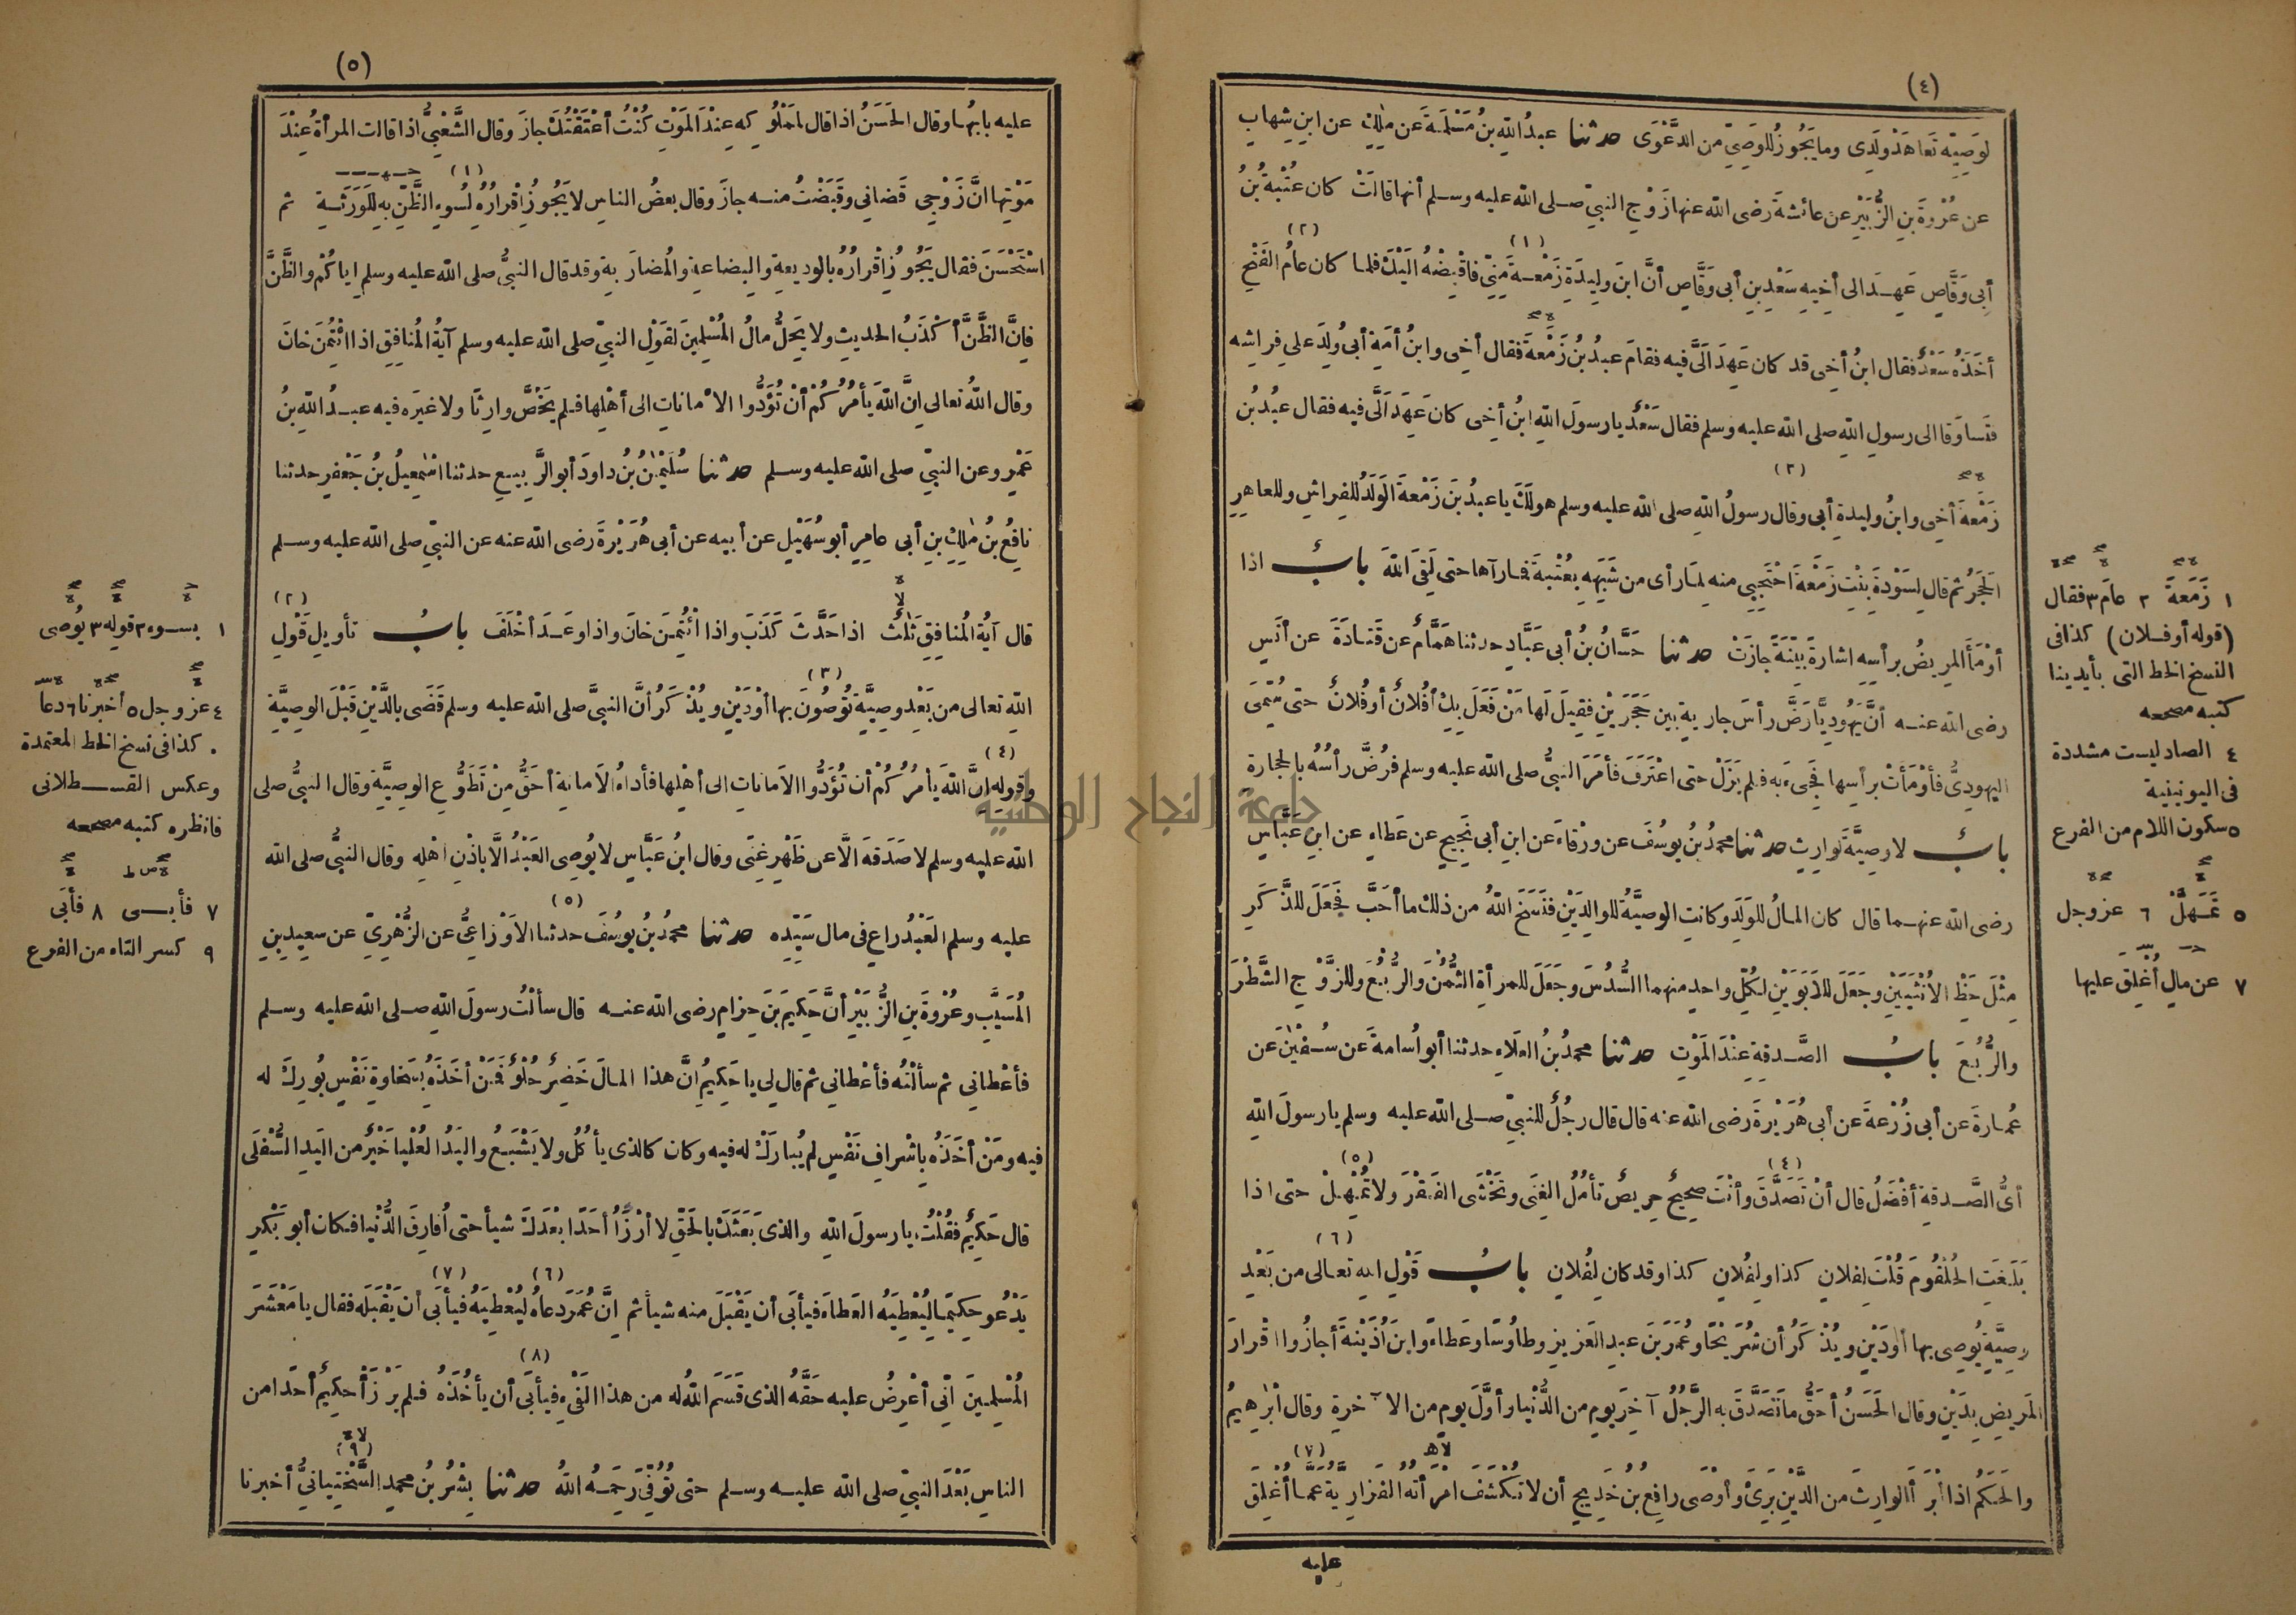 (٤)
لوَصِيِّه تَعاهَدْ ولَدِى وما يَجُوزُ للوَصِىِّ من الدَّعْوَى حدثنا عبدُ اللهِ بنُ مَسْلَمَةَ عن مٰلِكٍ عن ابنِ شِهابٍ
عن عُرْوةَ بنِ الزُّبَيْرِ عن عائشةَ رضى الله عنها زَوْجِ النبيِّ صلى الله عليه وسلم أنها قالَتْ كان عُتْبةُ بنُ
أبى وَقَّاصٍ عَهِدَ الى أخِيهِ سَعْدِ بنِ أبى وَقَّاصٍ أنَّ ابنَ ولِيدَةِ زَمْعةَ (١) مِنِّى فاقْبِضْهُ الَيْكَ فلما كان عامُ (٢) الفَتْحِ
أخَذَهُ سَعْدٌ فقال ابنُ أخِى قد كان عَهِدَ الَىَّ فيه فقامَ عبدُ بنُ زَمْعةَ فقال أخِى وابنُ أمَةِ أبى وُلِدَ على فِراشِه
فتَساوَقا الى رسولِ اللهِ صلى الله عليه وسلم فقال سَعْدٌ يا رسولَ اللهِ ابنُ أخِى كان عَهِدَ الَىَّ فيه فقال عبدُ بنُ
زَمْعةَ أخِى وابنُ وليدةِ أبى وقال (٣) رسولُ اللهِ صلى الله عليه وسلم هو لَكَ يا عبدُ بنَ زَمْعةَ الوَلَدُ للفِراشِ وللعاهِرِ
الحَجَرُ ثم قال لِسَوْدةَ بِنْتِ زَمْعةَ احْتَجِبِى منه لِمَا رأى من شَبَهِه بعُتْبةَ فما رآها حتى لَقِىَ اللهَ بابٌ اذا
أوْمَأَ المريضُ برأسِهِ اشارةً بَيِّنَةً جازَتْ حدثنا حَسَّانُ بنُ أبى عَبَّادٍ حدثنا هَمَّامٌ عن قَتادَةَ عن أنَسٍ
رضى الله عنه أنَّ يَهُودِيًّا رَضَّ رأسَ جاريةٍ بين حَجَرَيْنِ فقِيلَ لَها مَنْ فَعَلَ بِكِ أفُلانٌ أوفُلانٌ حتى سُمِّىَ
اليهودِىُّ فأوْمَأَتْ برأسِها فجِىءَ به فلم يَزَلْ حتى اعْتَرَفَ فأمَرَ النبيُّ صلى الله عليه وسلم فرُضَّ رأسُهُ بالحجارة
بابٌ لا وصِيَّةَ لوارِثٍ حدثنا محمدُ بنُ يوسُفَ عن ورْقاءَ عن ابنِ أبى نَجِيحٍ عن عَطاءٍ عن ابنِ عَبَّاسٍ
رضى الله عنهما قال كان المالُ للوَلَدِ وكانتِ الوصِيَّةُ للوالِدَيْنِ فنَسَخَ اللهُ من ذلك ما أحَبَّ فجَعَلَ للذَّكَرِ
مِثْلَ حَظِّ الأُنْثَيَيْنِ وجَعَلَ للأبَوَيْنِ لكُلِّ واحدٍ منهما السُّدُسَ وجَعَلَ للمرأةِ الثُّمُنَ والرُّبُعَ وللزَّوْجِ الشَّطْرَ
والرُّبُعَ بابُ الصَّدقةِ عِنْدَ المَوْتِ حدثنا محمدُ بنُ العَلاءِ حدثنا أبو أُسامةَ عن سُفْيٰنَ عن
عُمارةَ عن أبى زُرْعةَ عن أبى هُرَيْرةَ رضى الله عنه قال قال رجُلٌ للنبيِّ صلى الله عليه وسلم يا رسولَ اللهِ
أىُّ الصَّدقةِ أفْضَلُ قال أنْ تَصَدَّقَ (٤) وأنْتَ صحِيحٌ حرِيصٌ تأمُلُ الغِنَى وتَخْشَى الفَقْرَ ولا تُمْهِلْ (٥) حتى اذا
بَلَغَتِ الحُلْقُومَ قُلْتَ لفلانٍ كذا ولِفُلانٍ كذا وقد كان لِفُلانٍ بابُ قَوْلِ اللهِ (٦) تعالى من بَعْدِ
وصِيَّةٍ يُوصِى بها أودَيْنٍ ويُذْكَرُ أن شُرَيْحًا وعُمَرَ بنَ عبدِ العَزيزِ وطاوُسًا وعَطاءً وابنَ أُذَيْنةَ أجازُوا اقْرارَ
المَرِيضِ بدَيْنٍ وقال الحَسَنُ أحَقُّ ما تَصَدَّقَ به الرَّجُلُ آخِرَ يومٍ من الدُّنْيا وأوَّلَ يومٍ من الآخرةِ وقال ابْرٰهيمُ
والحَكَمُ اذا أبْرَأَ الوارِثَ من الدَّيْنِ بَرِئَ وأوْصَى رافِعُ بنُ خَدِيجٍ أن لا تُكْشَفَ امْرَأتُهُ الفَزارِيَّةُ عَمَّا (٧) أُغْلِقَ
عليه
١ زَمَعةَ ٢ عامَ ٣ فقال
(قوله أوفلان) كذا فى
النسخ الخط التى بأيدينا
كتبه مصححه
٤ الصاد ليست مشددة
فى اليونينية
٥ سكون اللام من الفرع
٥ تَمَهَّلْ ٦ عز وجل
٧ عن مالٍ أُغْلِقَ عليها
(٥)
عليه بابُها وقال الحَسَنُ اذا قال لمَمْلُوكِه عِنْدَ المَوْتِ كُنْتُ أعْتَقْتُكَ جازَ وقال الشَّعْبِىُّ اذا قالت المرأةُ عِنْدَ
مَوْتِها انَّ زَوْجِى قَضانِى وقَبَضْتُ منه جازَ وقال بعضُ الناسِ لا يَجُوزُ اقْرارُهُ لِسُوءِ (١) الظَّنِّ بِه لِلْوَرَثَةِ ثم
اسْتَحْسَنَ فقال يَجُوزُ اقْرارُهُ بالوديعةِ والبِضاعةِ والمُضارَبةِ وقد قال النبيُّ صلى الله عليه وسلم اياكُمْ والظَّنَّ
فانَّ الظَّنَّ أكْذَبُ الحديثِ ولا يَحِلُّ مالُ المُسْلِمِينَ لقَوْلِ النبيِّ صلى الله عليه وسلم آيةُ المُنافِقِ اذا ائْتُمِنَ خانَ
وقال اللهُ تعالى انَّ اللهَ يأمُرُكُمْ أنْ تُؤَدُّوا الأماناتِ الى أهْلِها فلم يَخُصَّ وارِثًا ولا غيرَه فيه عبدُ اللهِ بنُ
عَمْرٍو عن النبيِّ صلى الله عليه وسلم حدثنا سُلَيْمٰنُ بنُ داودَ أبو الرَّبِيعِ حدثنا اسْمٰعِيلُ بنُ جَعْفرٍ حدثنا
نافِعُ بنُ مٰلِكِ بنِ أبى عامِرٍ أبو سُهَيْلٍ عن أبيه عن أبى هُرَيْرةَ رضى الله عنه عن النبيِّ صلى الله عليه وسلم
قال آيَةُ المُنافِقِ ثَلٰثٌ اذا حَدَّثَ كَذَبَ واذا ائْتُمِنَ خانَ واذا وعَدَ أخْلَفَ بابُ تأويلِ قَوْلِ (٢)
اللهِ تعالى من بَعْدِ وصِيَّةٍ تُوصُونَ (٣) بها أوْدَيْنٍ ويُذْكَرُ أنَّ النبيَّ صلى الله عليه وسلم قَضَى بالدَّيْنِ قَبْلَ الوصِيَّةِ
وقوله (٤) انَّ اللهَ يأمُرُكُمْ أن تُؤَدُّوا الأماناتِ الى أهْلِها فأداءُ الأمانةِ أحَقُّ مِنْ تَطَوُّعِ الوصِيَّةِ وقال النبيُّ صلى
الله عليه وسلم لا صَدَقةَ الَّا عن ظَهْرِ غِنًى وقال ابنُ عَبَّاسٍ لا يُوصِى العَبْدُ الَّا باذْنِ أهْلِه وقال النبيُّ صلى الله
عليه وسلم العَبْدُ راعٍ فى مال سَيِّدِه حدثنا محمدُ بنُ يوسُفَ حدثنا (٥) الأوْزاعِىُّ عن الزُّهْرِىِّ عن سعِيدِ بنِ
المُسَيَّبِ وعُرْوةَ بنِ الزُّبَيْرِ أنَّ حَكِيمَ بنَ حِزامٍ رضى الله عنه قال سألْتُ رسولَ اللهِ صلى الله عليه وسلم
فأعْطانِى ثم سألْتُه فأعْطانِى ثم قال لِى يا حَكِيمُ انَّ هذا المالَ خَضِرٌ حُلْوٌ فمَنْ أخَذَهُ بسَخاوةِ نَفْسٍ بُورِكَ له
فيه ومَنْ أخَذَهُ باشْرافِ نَفْسٍ لم يُبارَكْ له فيه وكان كالذى يأكُلُ ولا يَشْبَعُ واليَدُ العُلْيا خَيْرٌ من اليَدِ السُّفْلَى
قال حَكِيمٌ فقُلْتُ يا رسولَ اللهِ والذى بَعَثَكَ بالحَقِّ لا أرْزَأُ أحَدًا بَعْدَكَ شيأ حتى أُفارِقَ الدُّنْيا فكان أبو بَكْرٍ
يَدْعُو حَكِيمًا لِيُعْطِيَهُ العَطاءَ فيأبَى أن يَقْبَلَ منه شيأ ثم انَّ عُمَرَ دَعاهُ (٦) لِيُعْطِيَهُ فيأبَى (٧) أن يَقْبَلَه فقال يا مَعْشَرَ
المُسْلِمِينَ انِّى أعْرِضُ عليه حَقَّهُ الذى قَسَمَ اللهُ له من هذا الفَىْءِ فيأبَى (٨) أن يأخُذَهُ فلم يَرْزَأْ حكِيمٌ أحَدًا من
الناسِ بَعْدَ النبيِّ صلى الله عليه وسلم حتى تُوُفِّىَ رَحِمَهُ اللهُ حدثنا بِشْرُ بنُ محمدٍ السَّخْتِيانِىُّ (٩) أخبرنا
١ بسوء ٢ قوله ٣ يُوصِى
٤ عز وجل ٥ أخبرنا ٦ دعا
. كذا فى نسخ الخط المعتمدة
وعكس القسطلانى
فانظره كتبه مصححه
٧ فأبى ٨ فأبَى
٩ كسر التاء من الفرع
جامعة النجاح الوطنية